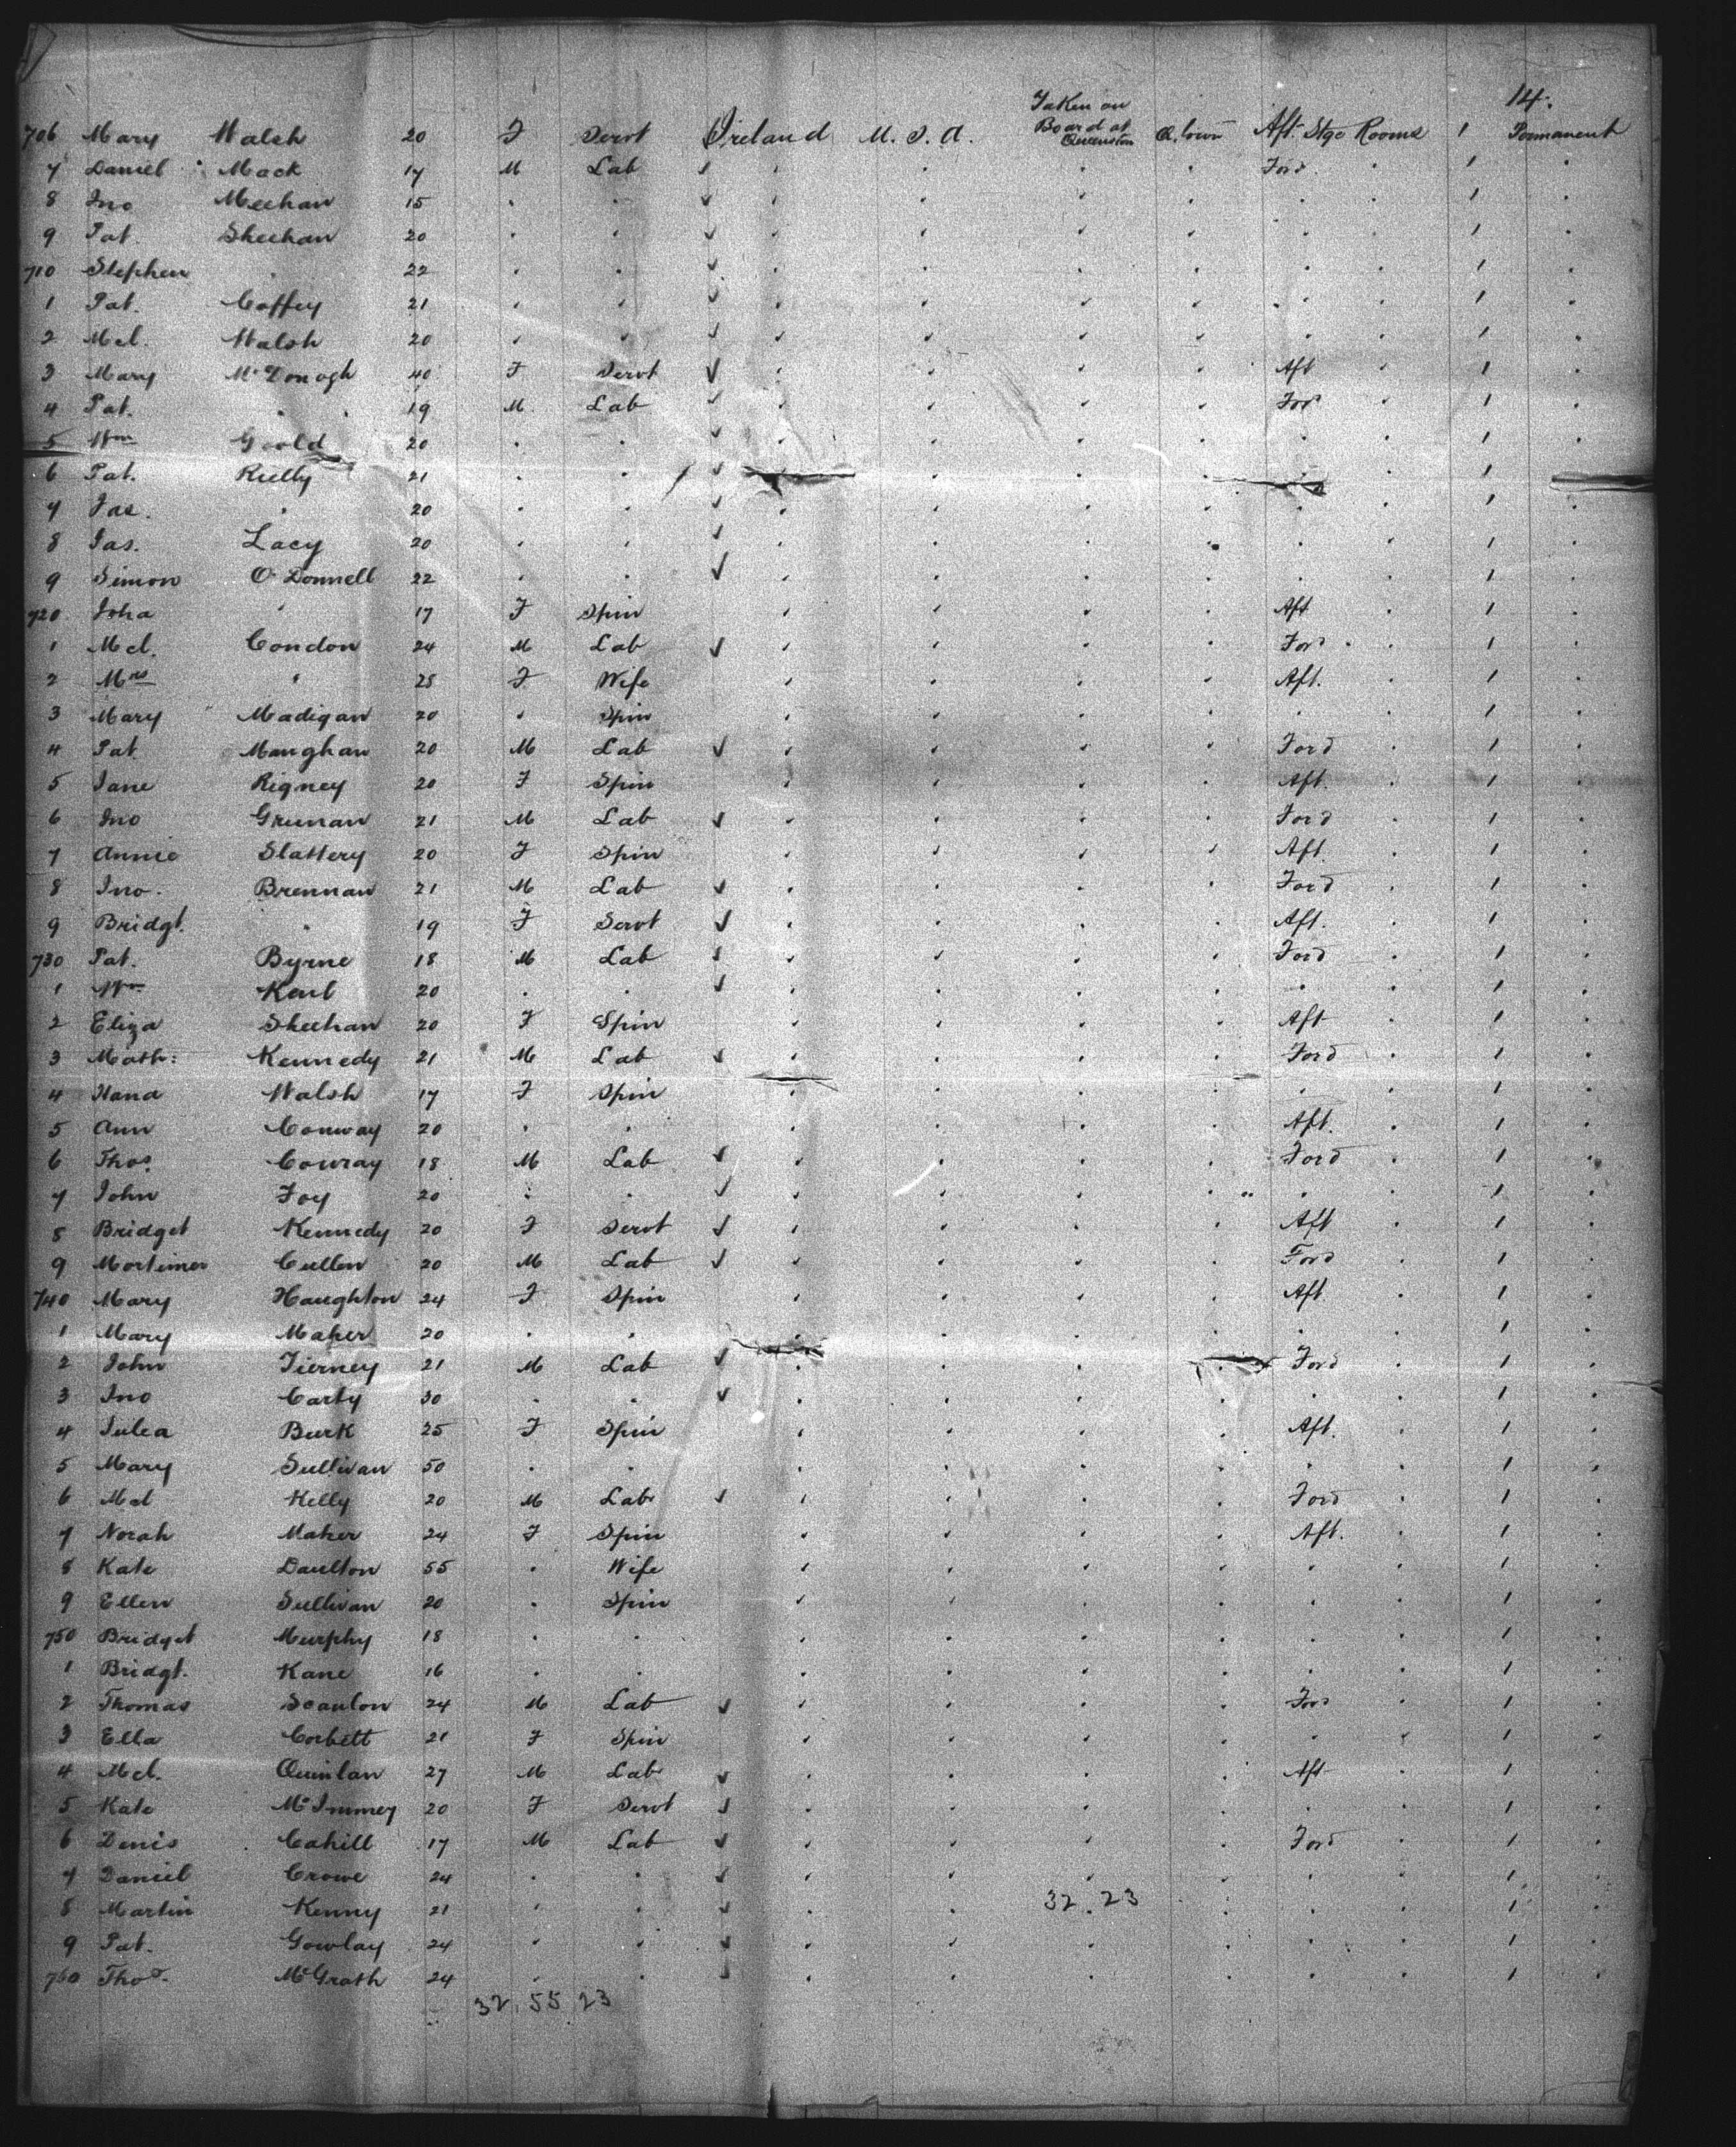 14.
Taken on
Board at
Queenston
706 Mary Walsh 20 F Servt Ireland U. S. A. Q. town Aft. Stge Rooms 1 Permanent
7 Daniel Mack 17 M Lab " " " " Ford " 1 "
8 Jno Meehan 15 " " " " " " " " 1 "
9 Pat. Sheehan 20 " " " " " " " " 1 "
710 Stephen " 22 " " " " " " " " 1 "
1 Pat. Coffey 21 " " " " " " " " 1 "
2 Mcl. Walsh 20 " " " " " " " " 1 "
3 Mary McDonogh 40 F Servt " " " " Aft " 1 "
4 Pat. " 19 M Lab " " " " For " 1 "
5 Wm Goold 20 " " " " " " " " 1 "
6 Pat. Rielly 21 " " " " " " " " 1 "
7 Jas. " 20 " " " " " " " " 1 "
8 Jas. Lacy 20 " " " " " " " " 1 "
9 Simon O'Donnell 22 " " " " " " " " 1 "
720 Joha " 17 F Spin " " " " Aft " 1 "
1 Mcl. Condon 24 M Lab " " " " For " 1 "
2 Mrs " 25 F Wife " " " " Aft. " 1 "
3 Mary Madigan 20 " Spin " " " " " " 1 "
4 Pat Maughan 20 M Lab " " " " Ford " 1 "
5 Jane Rigney 20 F Spin " " " " Aft. " 1 "
6 Jno Grunan 21 M Lab " " " " Ford " 1 "
7 Annie Slattery 20 F Spin " " " " Aft. " 1 "
8 Jno. Brennan 21 M Lab " " " " Ford " 1 "
9 Bridgt. " 19 F Servt " " " " Aft. " 1 "
730 Pat. Byrne 18 M Lab " " " " Ford " 1 "
1 Wm Kent 20 " " " " " " " " 1 "
2 Eliza Sheehan 20 F Spin " " " " Aft " 1 "
3 Math: Kennedy 21 M Lab " " " " Ford " 1 "
4 Hana Walsh 17 F Spin " " " " " " 1 "
5 Ann Conway 20 " " " " " " Aft. " 1 "
6 Thos. Cowray 18 M Lab " " " " Ford " 1 "
7 John Foy 20 " " " " " " " " 1 "
8 Bridget Kennedy 20 F Servt " " " " Aft " 1 "
9 Mortimer Cullen 20 M Lab " " " " Ford " 1 "
740 Mary Haughton 24 F Spin " " " " Aft " 1 "
1 Mary Maher 20 " " " " " " " " 1 "
2 John Tierney 21 M Lab " " " " Ford " 1 "
3 Jno Carty 30 " " " " " " " " 1 "
4 Julea Burk 25 F Spin " " " " Aft. " 1 "
5 Mary Sullivan 50 " " " " " " " " 1 "
6 Mcl Kelly 20 M Lab " " " " Ford " 1 "
7 Norah Maher 24 F Spin " " " " Aft. " 1 "
8 Kate Daulton 55 " Wife " " " " " " 1 "
9 Ellen Sullivan 20 " Spin " " " " " " 1 "
750 Bridget Murphy 18 " " " " " " " " 1 "
1 Bridgt. Kane 16 " " " " " " " " 1 "
2 Thomas Scanlon 24 M Lab " " " " For " 1 "
3 Ella Corbett 21 F Spin " " " " " " 1 "
4 Mcl. Quinlan 27 M Lab " " " " Aft " 1 "
5 Kate McInmey 20 F Servt " " " " " " 1 "
6 Denis Cahill 17 M Lab " " " " Ford " 1 "
7 Daniel Crowe 24 " " " " " " " " 1 "
8 Martin Kenny 21 " " " " 32 . 23 " " " 1 "
9 Pat. Gowlay 24 " " " " " " " " 1 "
760 Thos. McGrath 24 " " " " " " " " 1 "
32 55 23